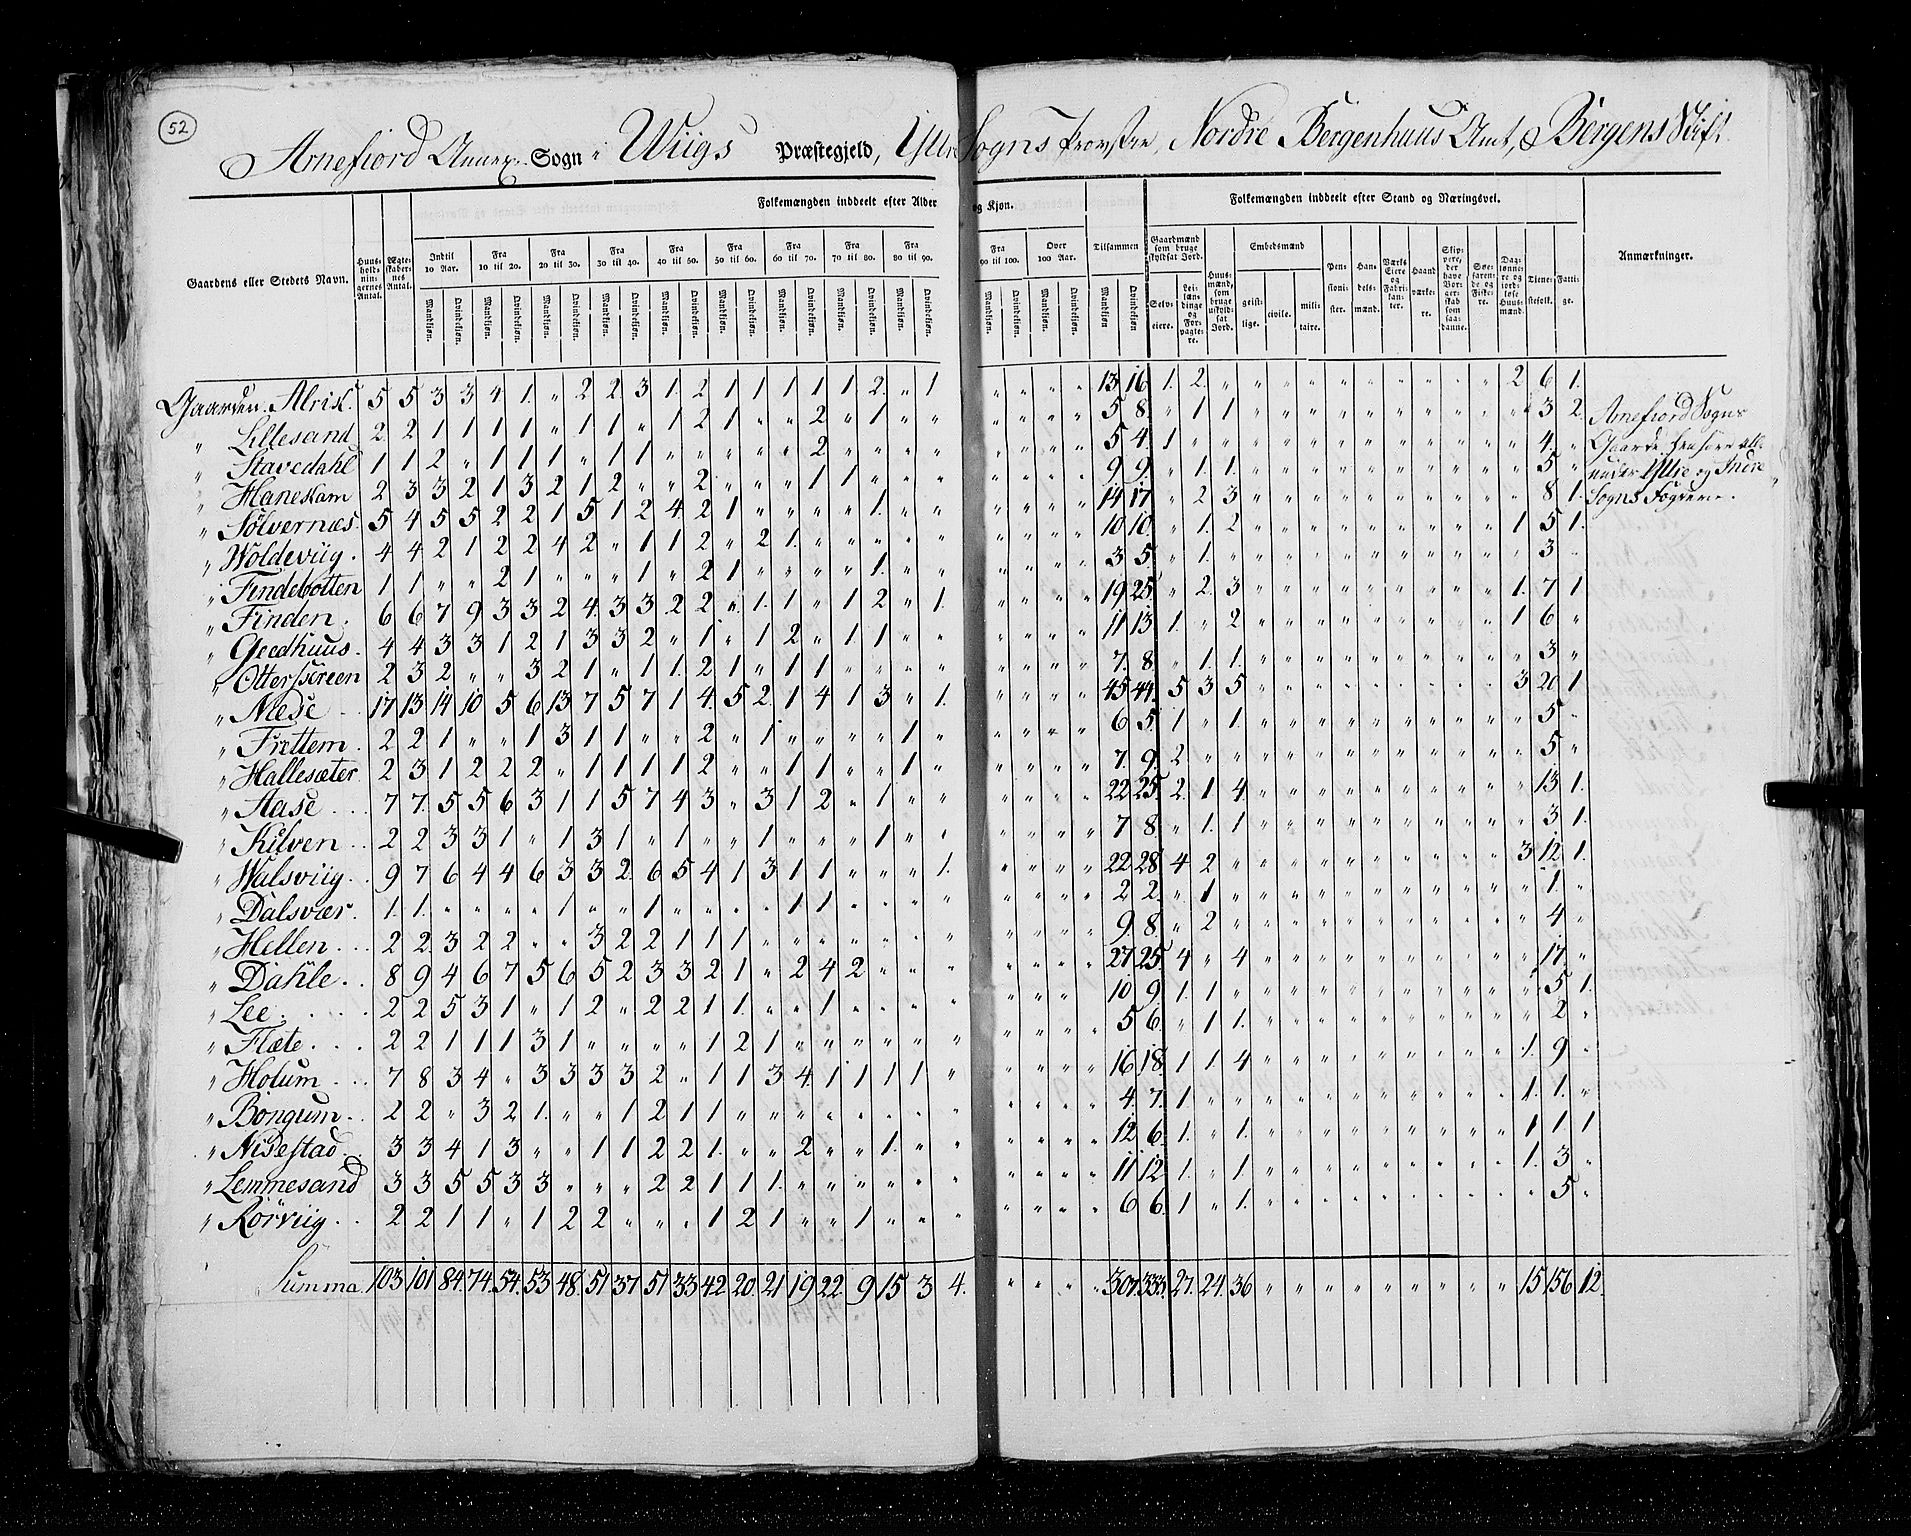 52
Arnefiord Annex Sogn i Wiigs Præstegjeld, Yttre Sogns Provstie, Nordre Bergenhuus Amt, Bergens Stift
Gaardens eller Stedets Navn.
Huusholdningernes Antal.
Ægteskabernes Antal.
Folkemængden inddeelt efter Alder og Kjøn.
Indtil 10 Aar.
Fra 10 til 20.
Fra 20 til 30.
Fra 30 til 40.
Fra 40 til 50.
Fra 50 til 60.
Fra 60 til 70.
Fra 70 til 80.
Fra 80 til 90.
Fra 90 til 100.
Over 100 Aar.
Tilsammen
Mandkjøn. Qvindekjøn.
Folkemængden inddeelt efter Stand og Næringsvei.
Gaardmænd som bruge skyldsat Jord.
Selveiere.
Leilændinge og Forpagtere.
Huusmænd, som bruge uskyldsat Jord.
Embedsmænd
geistlige. civile. militaire.
Pensionister.
Handelsmænd.
Værks Eiere og Fabrikanter.
Haandværkere.
Skippere, der have Borgerskab som saadanne.
Søefarende og Fiskere.
Daglønnere og jordløse Huusmænd.
Tienestefolk.
Fattige.
Anmærkninger.
Gaarden Alrik. 5 5 3 3 4 1. " 2 2 3 1. 2 1 1 1 1 1. 2. " 1 " " " " 13 16 1. 2. " " " " " " " " " " 2 6 1.
" Lillesand 2. 2 1 1 1 1 " 1 1 " 1 2 1 " " 2 " 1 " " " " " " 5 8. " 1 1 " " " " " " " " " " 3 2.
" Stavedahl 1 1 2 " 1 1 1 " 1 1 " " " " " 2 " " " " " " " " 5 4. 1 " " " " " " " " " " " " 4. "
" Haneskam 2 3 3 2 1 3 2 1 2 " " 2 " " 1 1 " " " " " " " " 9 9 " 1. 1. " " " " " " " " " " 5 "
" Sølvernæs. 5 4 5 5 2 2 1 5 1 2 4. 2 1 " " " " 1. " " " " " " 14 17 " 2 3 " " " " " " " " " " 8 1.
" Woldeviig. 4 4 2 1 2 2 4 2 " 1 1 2 " 2 1. " " " " " " " " " 10 10. " 1. 2 " " " " " " " " " 1 5 1.
" Findebotten 1 1 " " 2 1 " " " 1 " 2 1 " " " " 1. " " " " " " 3 5. " 1. " " " " " " " " " " " 3 "
" Finden. 6 6 7 9 3 3 2 4. 3 3 2 2 " 1. 1 " 1 2 " 1. " " " " 19 25 " 2 3 " " " " " " " " " 1. 7 1
" Geedhuus. 4 4 3 3 1 2 1 3 3 2 " 1 " 1 2 " 1 1 " " " " " " 11 13 1. " 2 " " " " " " " " " 1 6 "
" Otterskreen 2 3 2 " " 3 2 1 " 1 1. 2 1 " 1 1 " " " " " " " " 7. 8 " 1. 1. " " " " " " " " " " 3 "
" Nese 17 13 14 10 5 6 13 7 5 7 1 4. 5 2. 1 4 1 3 " 1. " " " " 45 44 5 3 5 " " " " " " " " " 3 20 1
" Frettem. 2 2 1 " " 1 3 1 1 " " 2 " 1 " " " " 1 " " " " " 6 5. 1 " 1. " " " " " " " " " " 5 "
" Hallesæter 2 3 1 2 2 2 " 1 1 1 1 2 " " 1 1 " " 1 " " " " " 7. 9. 2 " " " " " " " " " " " " 5 "
" Aase 7 7. 5 5 6 3 1 1 5 7 4 3 " 3 1 2 " 1 " " " " " " 22 25. 2. 1 4. " " " " " " " " " " 13 1.
" Kilven. 2 2 3 3 1 " 1 3 1 " 1 " " 1 " " " 1 " " " " " " 7 8 " 1. 1 " " " " " " " " " " 3 1.
" Walsviig. 9 7 6 4 4 6 3 3 2. 6 5 4 1 3 1 1 " " " 1. " " " " 22 28 4 2 " " " " " " " " " " 3 12 1.
" Dalsvær. 1. 1. " " " " 1 " " 1 " " " " 1 1 " " " " " " " " 2 2. " 1 " " " " " " " " " " " 1. "
" Hellen. 2 2 3 2 2 " " 3 2 2 1 1 1 " " " " " " " " " " " 9. 8. " 2 " " " " " " " " " " " 4 "
" Dahle. 8 9 4 6 7 5 6 5 2 3 3 2 1 " 2 4 2 " " " " " " " 27 25 4 " 4 " " " " " " " " " " 17. "
" Lee. 2 2 5 3 1 " 1 2 " 2 2 1 1. " " 1 " " " " " " " " 10 9. 1. 1 " " " " " " " " " " " 5 1.
" Flæte. 2 2 1 1 1 3 1 " " " " 1 2 1 " " " " " " " " " " 5 6. " 1 1. " " " " " " " " " " 2 "
" Holum. 7 8 3 4 " 3 3 3 3 2 " 1 1 3 4. 1 1 1 1 " " " " " 16 18. 1 1. 4 " " " " " " " " " 1. 9 "
" Böngum. 2 2 " 3 2 1. " " 1 2 1 1 " " " " " " " " " " " " 4. 7. 1 " " " " " " " " " " " 1. 1. "
" Nidestad 3 3 4 1 3 " " 1 1 2 2 1. " " 2 " " 1. " " " " " " 12 6. 1. " 1. " " " " " " " " " 1 1 1
" Lemmesand 3 3 5 5 3 3 " " " 2 2 1 1 1. " " " " " " " " " " 11 12 1. " 1 " " " " " " " " " 1. 3 "
" Rörviig. 2 2 1 1 " 1 2 2 " " " 1 2 1 " " 1 " " " " " " " 6 6. 1 " 1. " " " " " " " " " " 5 "
Arnefiord Sogns
Gaarde henhöre alle
under Yttre og Indre
Sogns Fogderie.
Summa. 103 101 84. 74. 54. 53 48. 51 37 51 33 42 20. 21 19 22. 9 15 3 4. " " " " 307. 333. 27. 24. 36 " " " " " " " " " 15 156 12.